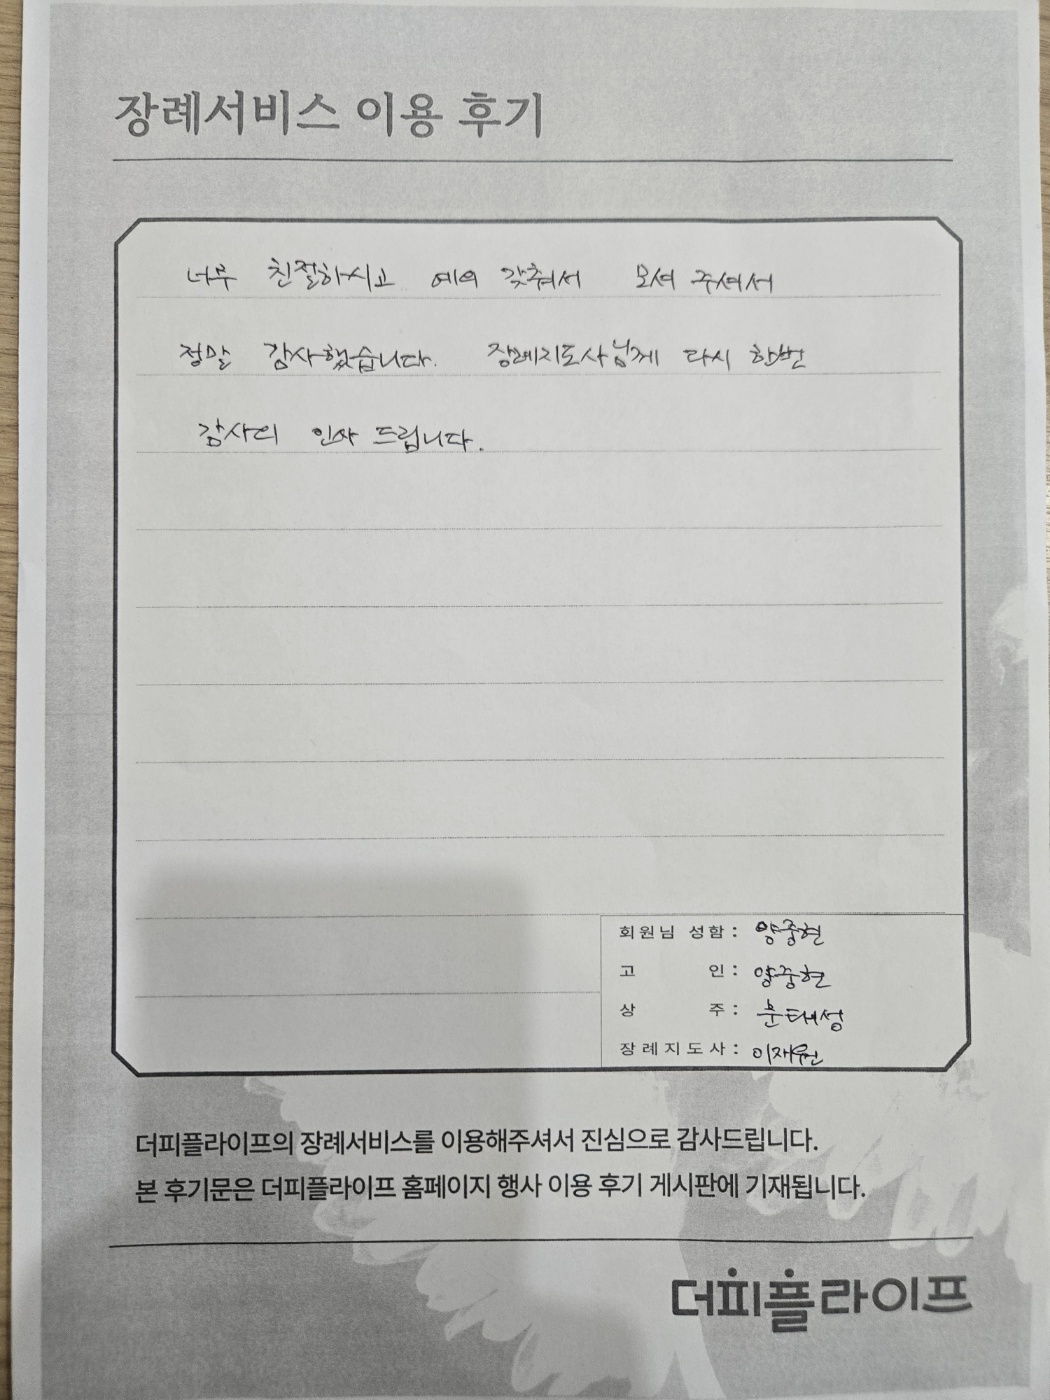 장례서비스 이용 후기
너무 친절하시고 예의 갖춰서 모셔 주셔서
정말 감사했습니다. 장례지도사님께 다시 한번
감사의 인사 드립니다.
회원님 성함 : 양중현
고 인 : 양중현
상 주 : 문태성
장례지도사 : 이재원
더피플라이프의 장례서비스를 이용해주셔서 진심으로 감사드립니다.
본 후기문은 더피플라이프 홈페이지 행사 이용 후기 게시판에 기재됩니다.
더피플라이프